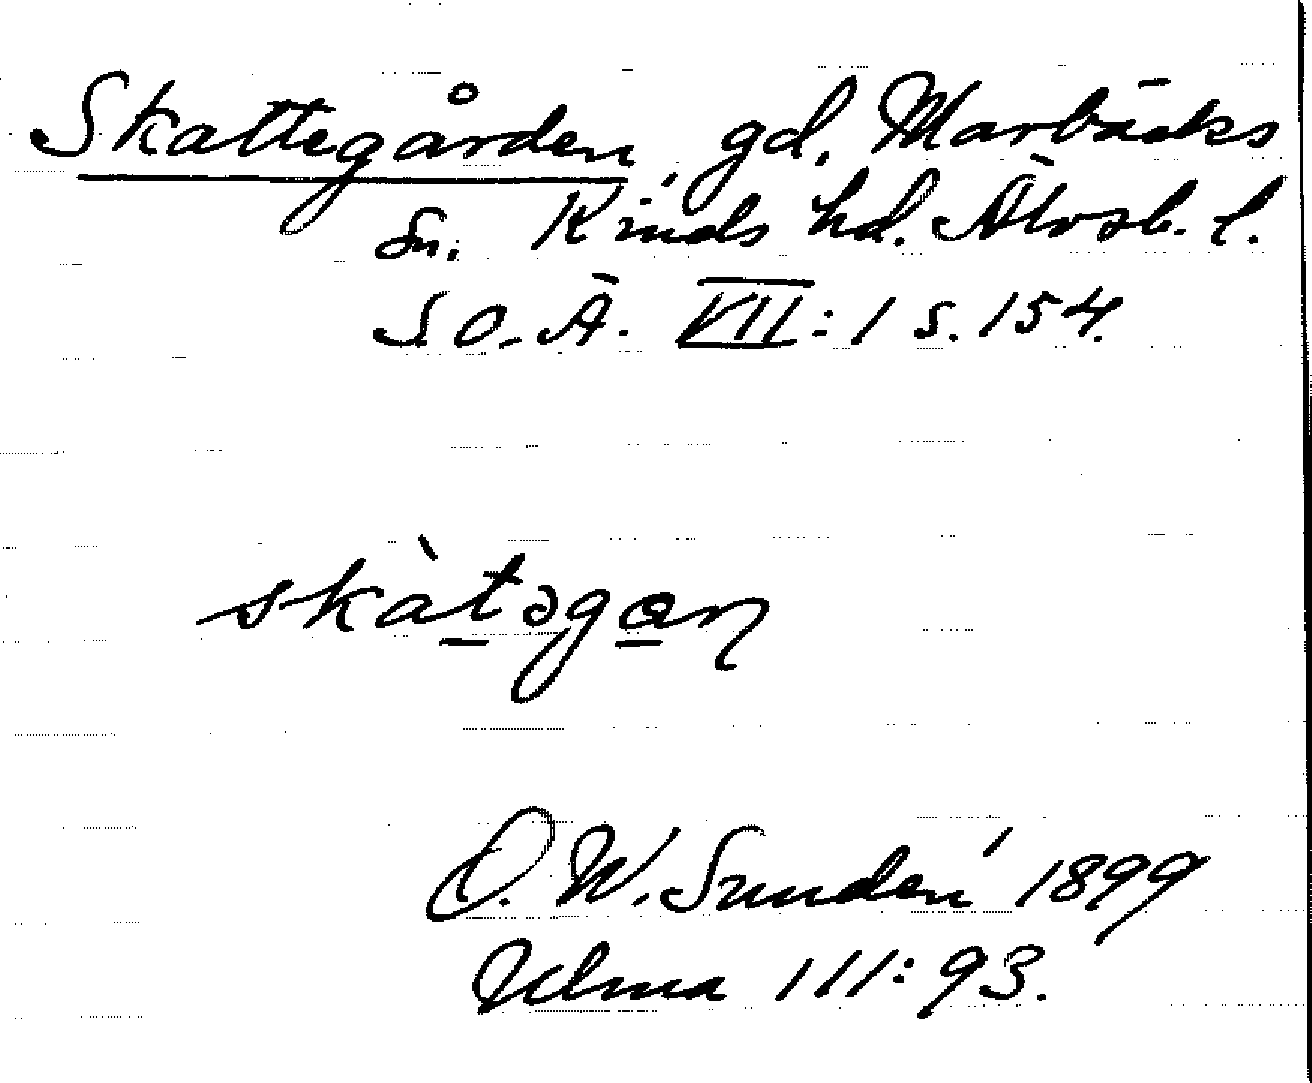 Skattegården, gd, Marbäcks
sn. Kinds hd. Älvsb. l.
S.O.Ä. VII:1 s. 154.
skàtəgan
D. W. Sundén 1899
Ulma 111:93.